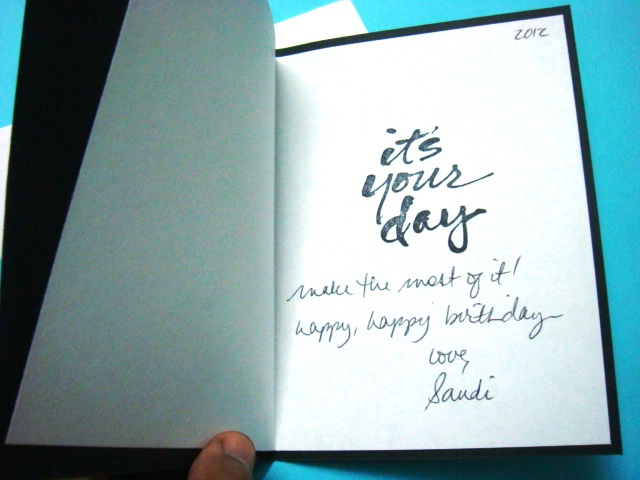 2012
it's
your
day
make the most of it!
happy, happy birthday
love,
Sandi